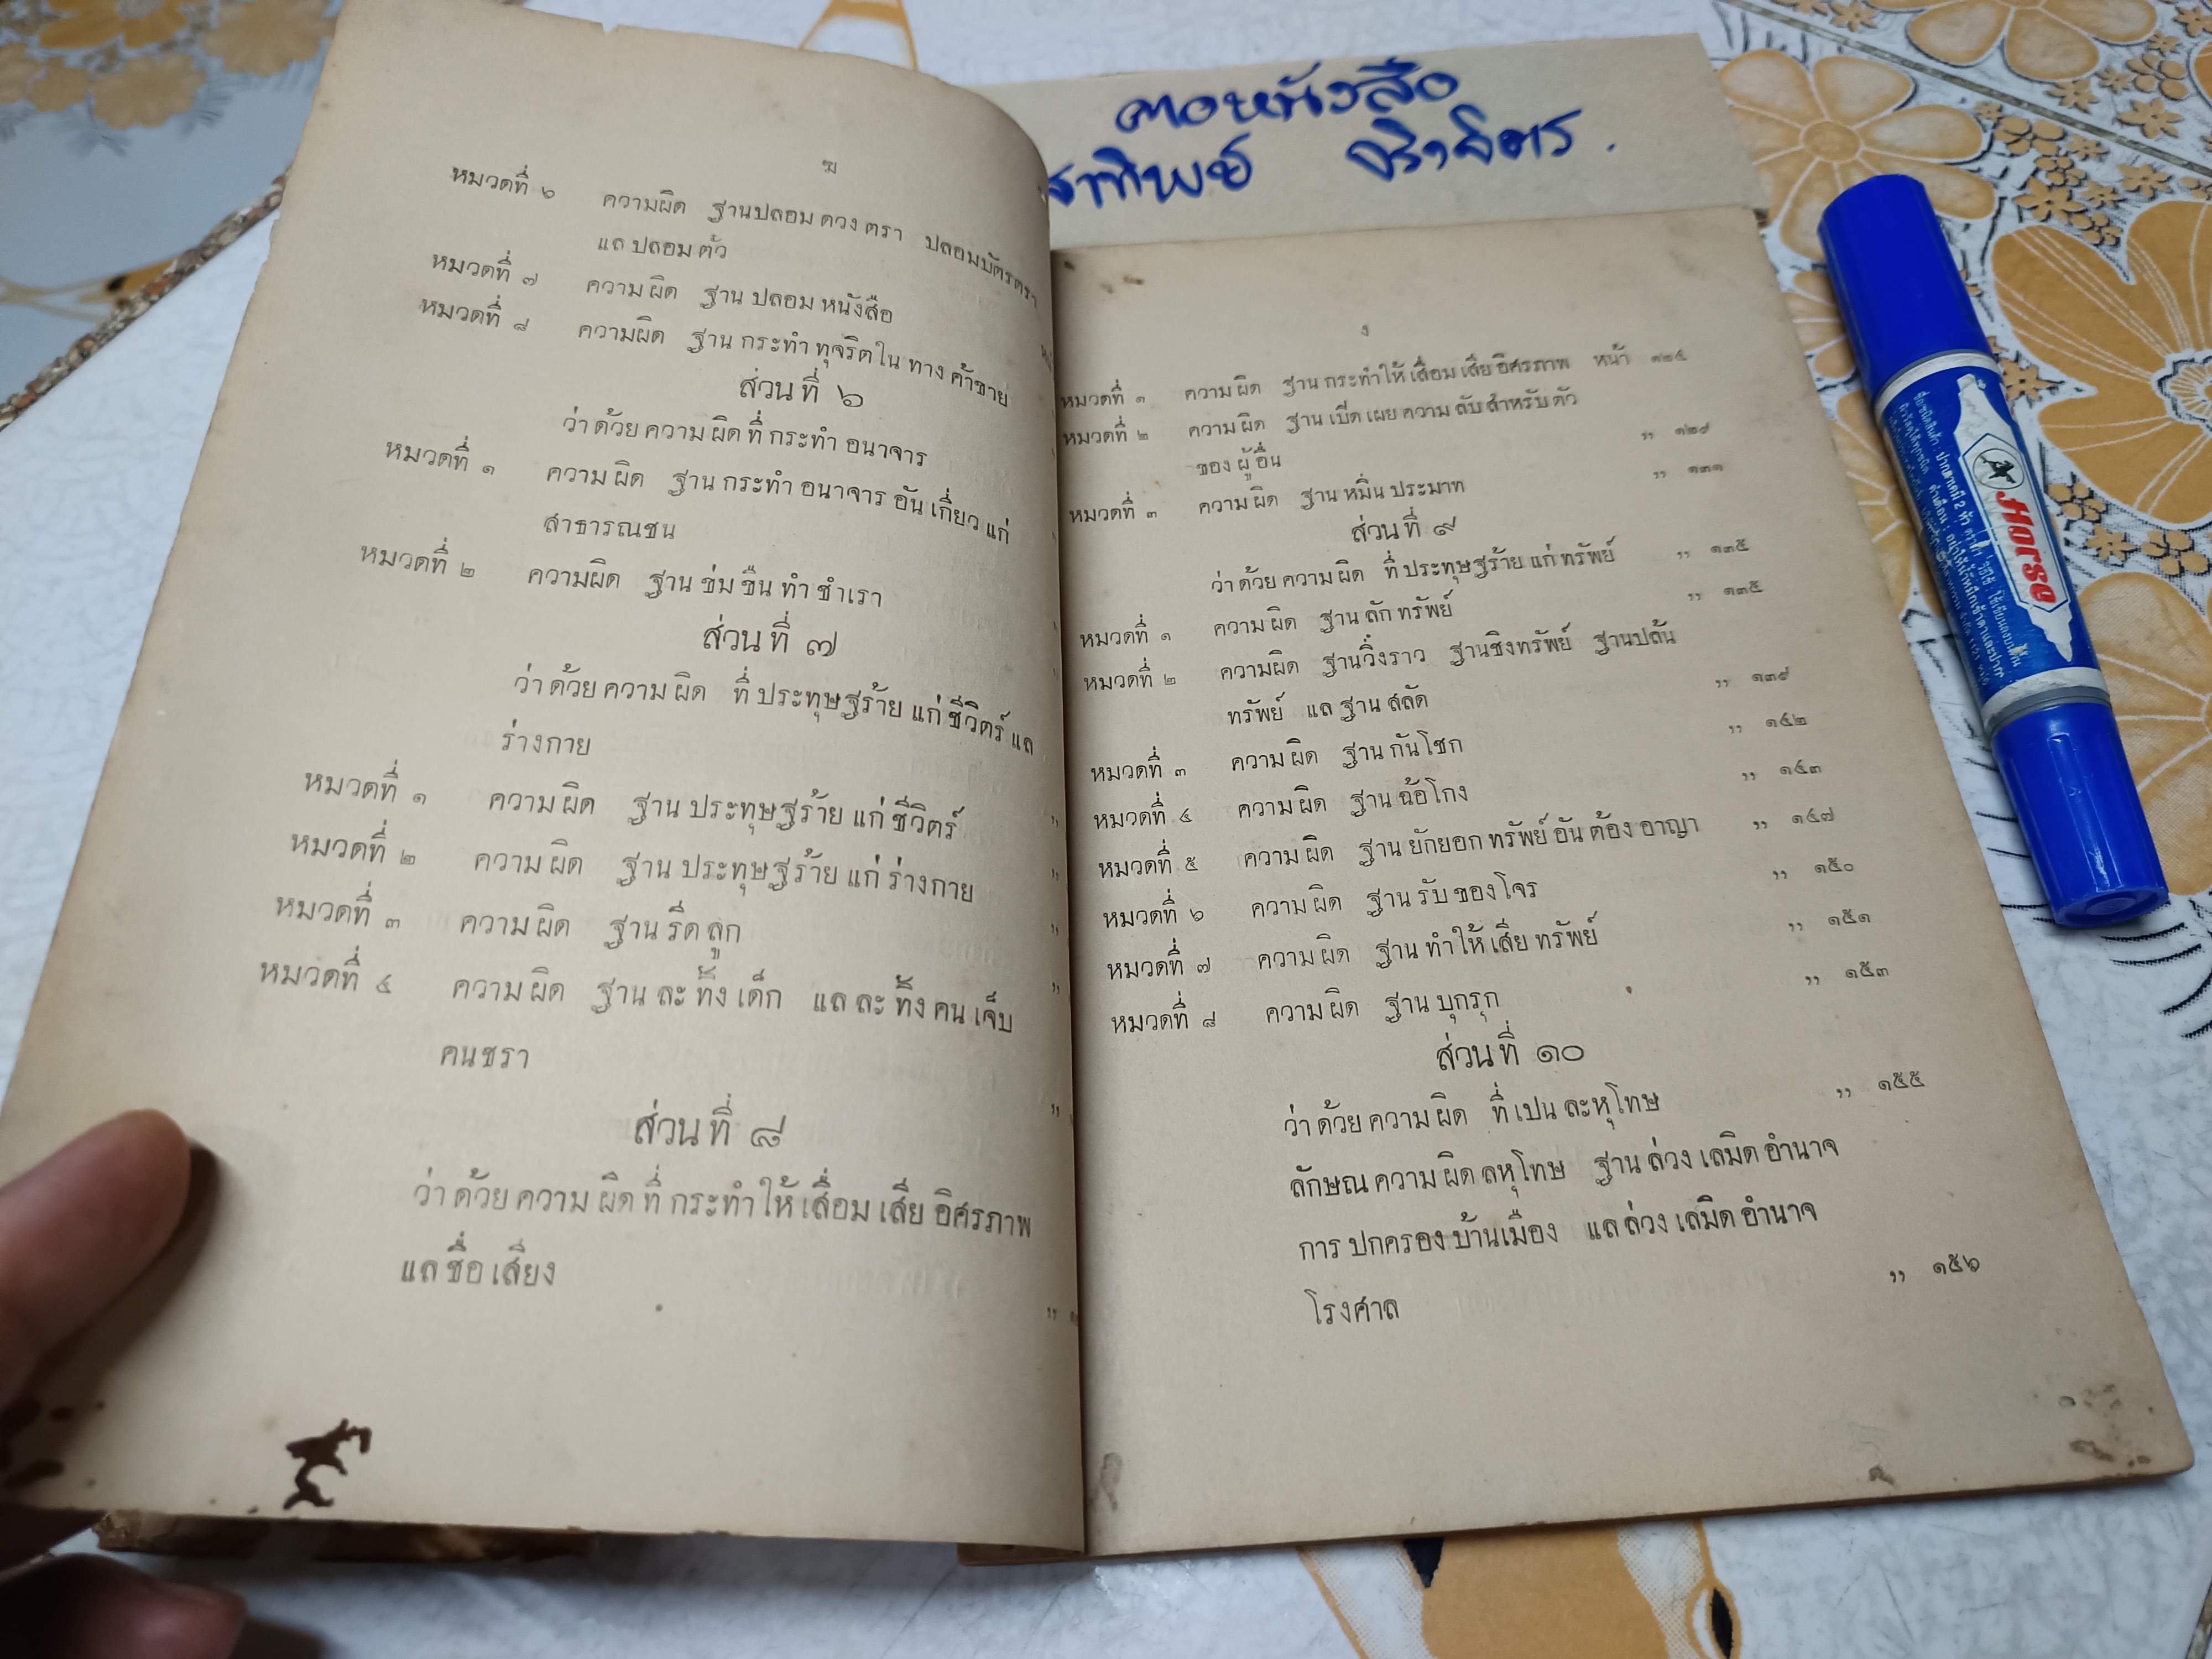 ฆ
หมวดที่ ๖ ความผิด ฐานปลอม ดวง ตรา ปลอมบัตรตรา
แล ปลอม ตัว
หมวดที่ ๗ ความ ผิด ฐาน ปลอม หนังสือ
หมวดที่ ๘ ความผิด ฐาน กระทำ ทุจริต ใน ทาง ค้าขาย
ส่วน ที่ ๖
ว่า ด้วย ความ ผิด ที่ กระทำ อนาจาร
หมวดที่ ๑ ความ ผิด ฐาน กระทำ อนาจาร อัน เกี่ยว แก่
สาธารณชน
หมวดที่ ๒ ความผิด ฐาน ข่ม ขืน ทำ ชำเรา
ส่วน ที่ ๗
ว่า ด้วย ความ ผิด ที่ ประทุษฐร้าย แก่ ชีวิตร์ แล
ร่างกาย
หมวดที่ ๑ ความ ผิด ฐาน ประทุษฐร้าย แก่ ชีวิตร์
หมวดที่ ๒ ความ ผิด ฐาน ประทุษฐร้าย แก่ ร่างกาย
หมวดที่ ๓ ความ ผิด ฐาน รีด ลูก
หมวดที่ ๔ ความ ผิด ฐาน ละ ทิ้ง เด็ก แล ละ ทิ้ง คน เจ็บ
คนชรา
ส่วน ที่ ๘
ว่า ด้วย ความ ผิด ที่ กระทำ ให้ เสื่อม เสีย อิศรภาพ
แล ชื่อ เสียง
ฅอหนังสือ
ง
หมวดที่ ๑ ความ ผิด ฐาน กระทำ ให้ เสื่อม เสีย อิศรภาพ หน้า ๑๒๕
หมวดที่ ๒ ความ ผิด ฐาน เปิด เผย ความ ลับ สำหรับ ตัว
ของ ผู้ อื่น ,, ๑๒๙
หมวดที่ ๓ ความ ผิด ฐาน หมิ่น ประมาท ,, ๑๓๑
ส่วน ที่ ๙
ว่า ด้วย ความ ผิด ที่ ประทุษฐร้าย แก่ ทรัพย์ ,, ๑๓๕
หมวดที่ ๑ ความ ผิด ฐาน ลัก ทรัพย์ ,, ๑๓๕
หมวดที่ ๒ ความผิด ฐานวิ่งราว ฐานชิงทรัพย์ ฐานปล้น
ทรัพย์ แล ฐาน สลัด ,, ๑๓๙
หมวดที่ ๓ ความ ผิด ฐาน กันโชก ,, ๑๔๒
หมวดที่ ๔ ความ ผิด ฐาน ฉ้อโกง ,, ๑๔๓
หมวดที่ ๕ ความ ผิด ฐาน ยักยอก ทรัพย์ อัน ต้อง อาญา ,, ๑๔๗
หมวดที่ ๖ ความ ผิด ฐาน รับ ของโจร ,, ๑๕๐
หมวดที่ ๗ ความ ผิด ฐาน ทำ ให้ เสีย ทรัพย์ ,, ๑๕๑
หมวดที่ ๘ ความ ผิด ฐาน บุกรุก ,, ๑๕๓
ส่วน ที่ ๑๐
ว่า ด้วย ความ ผิด ที่ เปน ละหุโทษ ,, ๑๕๕
ลักษณ ความ ผิด ลหุโทษ ฐาน ล่วง เลมิด อำนาจ
การ ปกครอง บ้านเมือง แล ล่วง เลมิด อำนาจ
โรงศาล ,, ๑๕๖
Horse